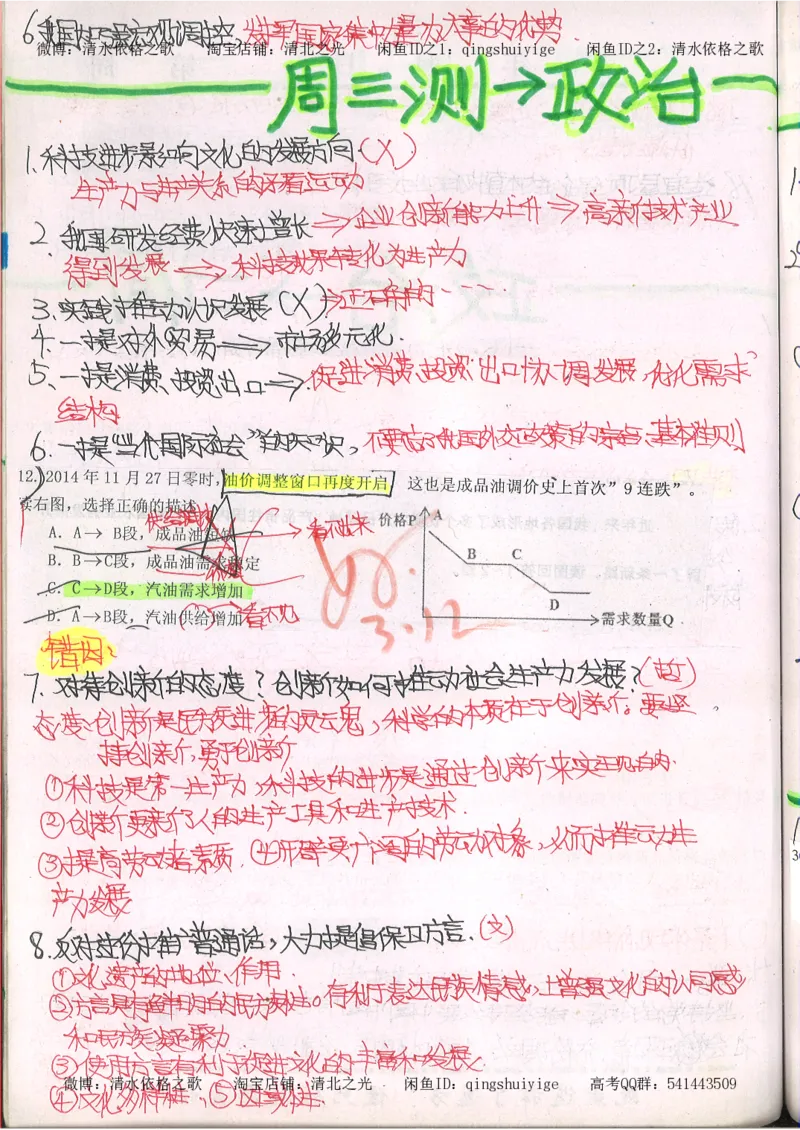 6.我国加强宏观调控,发挥国家集中力量办大事的优势
微博:清水依格之歌 淘宝店铺:清北之光 闲鱼ID之1:qingshuiyige 闲鱼ID之2:清水依格之歌
周三测→政治
1.科技进步影响文化的发展方向(X)
生产力与生产关系的矛盾运动
2.我国研发经费快速增长⇒企业创新能力上升⇒高新技术产业
得到发展⇒科技效果转化为生产力
3.实践推动认识发展(X)⇒正确的----
4.一提对外贸易⇒市场多元化.
5.一提消费、投资、出口⇒促进消费、投资、出口协调发展,优化需求
结构
6.一提"当代国际社会"的知识,不要忘了我国外交政策的宗旨、基本准则
12.2014年11月27日零时,油价调整窗口再度开启 这也是成品油调价史上首次"9连跌"。
读右图,选择正确的描述
A.A→B段,成品油短缺
看不出来
B.B→C段,成品油需求稳定
C.C→D段,汽油需求增加
D.A→B段,汽油供给增加→看不见
价格P A
B C
D
需求数量Q
3.12
错因:
7.对待创新的态度?创新如何推动社会生产力发展?(哲)
态度:创新是民族进步的灵魂,科学的本质在于创新。要坚
持创新,勇于创新
①科技是第一生产力,科技的进步是通过创新来实现的.
②创新更新了人的生产工具和生产技术.
③提高劳动者素质.④开辟更广阔的劳动对象,从而推动生
产力发展
8.反对过份推广普通话,大力提倡保卫方言.(文)
①文化遗产的地位、作用.
②方言具有鲜明的民族性。有利于表达民族情感,增强文化的认同感
和民族凝聚力
③使用方言有利于促进文化的丰富和发展.
微博:清水依格之歌 淘宝店铺:清北之光 闲鱼ID:qingshuiyige 高考QQ群:541443509
④文化多样性.⑤区域性.